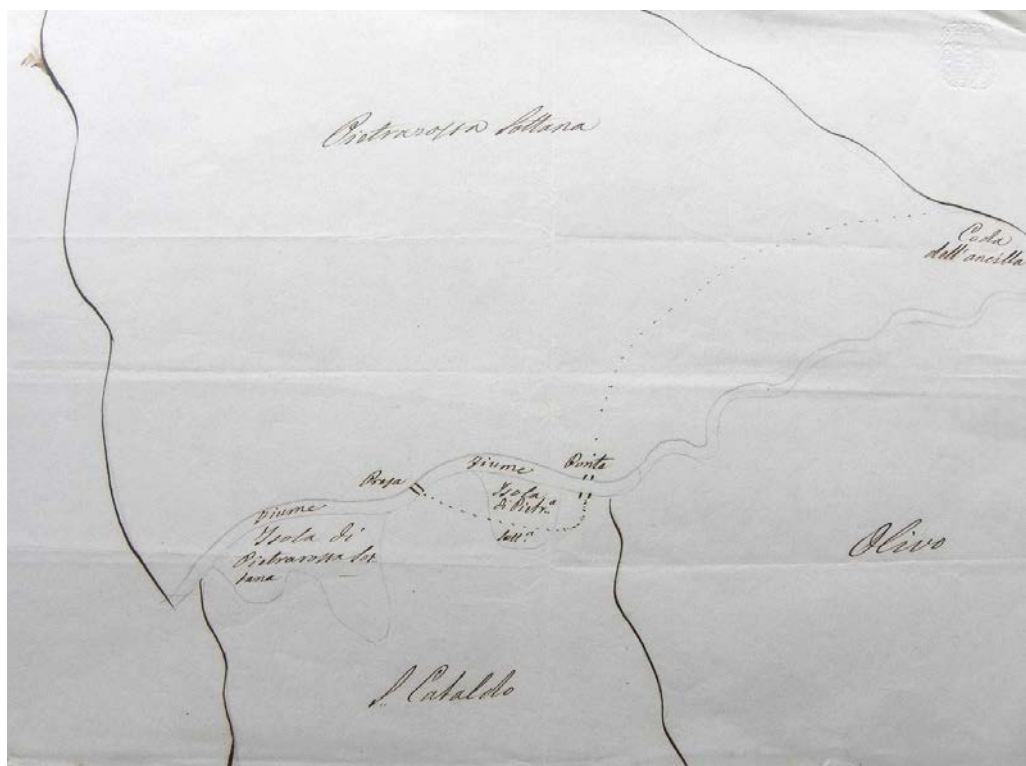 Pietrarossa Sottana
Coda
dell'ancilla
Fiume
Ponte
Presa
Isola
di Pietr.a
Sott.a
Fiume
Isola di
Pietrarossa Sot
tana
Olivo
S. Cataldo